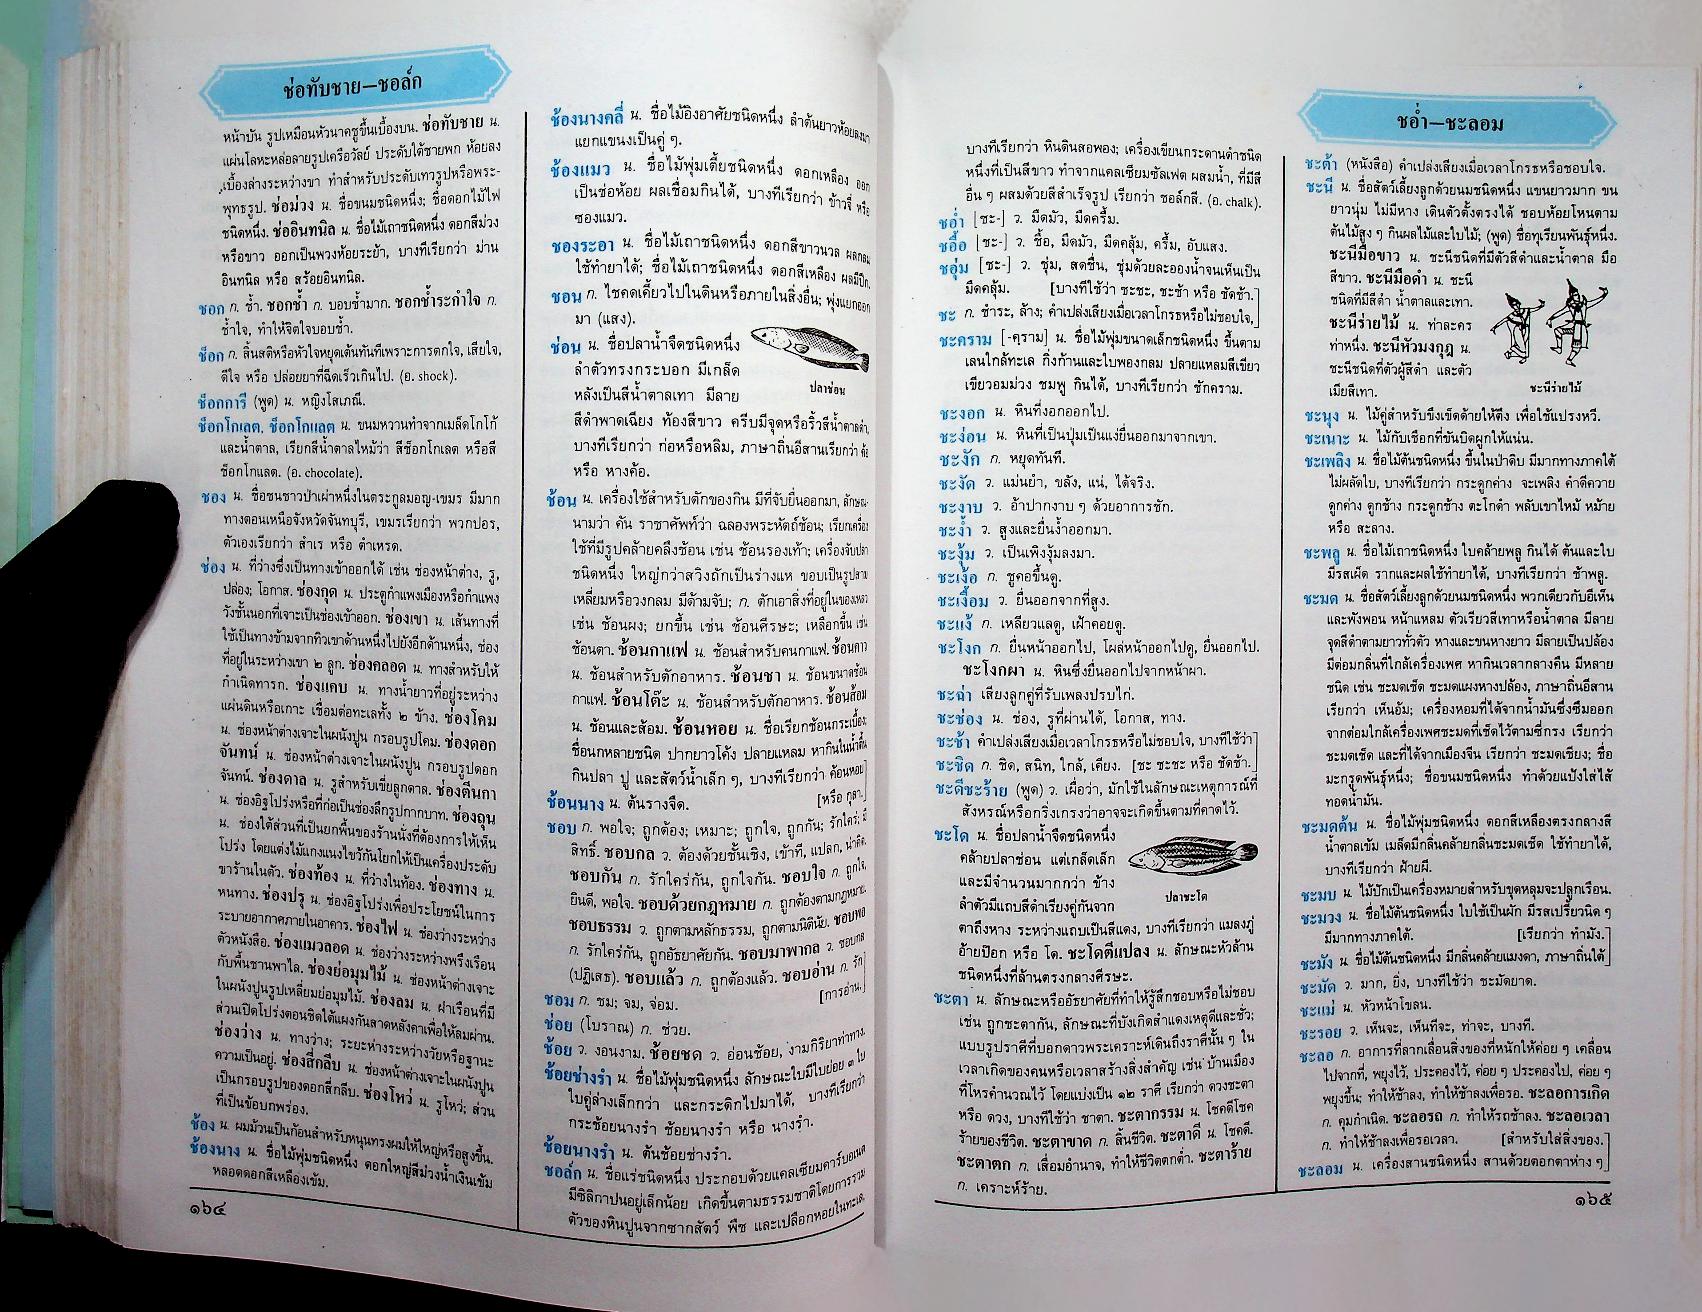 ช่อทับชาย—ชอล์ก
หน้าบัน รูปเหมือนหัวนาคชูขึ้นเบื้องบน. ช่อทับชาย น.
แผ่นโลหะหล่อลายรูปเครือวัลย์ ประดับใต้ชายพก ห้อยลง
เบื้องล่างระหว่างขา ทำสำหรับประดับเทวรูปหรือพระ-
พุทธรูป. ช่อม่วง น. ชื่อขนมชนิดหนึ่ง; ชื่อดอกไม้ไฟ
ชนิดหนึ่ง. ช่ออินทนิล น. ชื่อไม้เถาชนิดหนึ่ง ดอกสีม่วง
หรือขาว ออกเป็นพวงห้อยระย้า, บางทีเรียกว่า ม่าน
อินทนิล หรือ สร้อยอินทนิล.
ชอก ก. ช้ำ. ชอกช้ำ ก. บอบช้ำมาก. ชอกช้ำระกำใจ ก.
ช้ำใจ, ทำให้จิตใจบอบช้ำ.
ช็อก ก. สิ้นสติหรือหัวใจหยุดเต้นทันทีเพราะการตกใจ, เสียใจ,
ดีใจ หรือ ปล่อยยาที่ฉีดเร็วเกินไป. (อ. shock).
ช็อกการี (พูด) น. หญิงโสเภณี.
ช็อกโกเลต, ช็อกโกแลต น. ขนมหวานทำจากเมล็ดโกโก้
และน้ำตาล, เรียกสีน้ำตาลไหม้ว่า สีช็อกโกเลต หรือสี
ช็อกโกแลต. (อ. chocolate).
ชอง น. ชื่อชนชาวป่าเผ่าหนึ่งในตระกูลมอญ-เขมร มีมาก
ทางตอนเหนือจังหวัดจันทบุรี, เขมรเรียกว่า พวกปอร,
ตัวเองเรียกว่า สำเร หรือ ตำเหรด.
ช่อง น. ที่ว่างซึ่งเป็นทางเข้าออกได้ เช่น ช่องหน้าต่าง, รู,
ปล่อง; โอกาส. ช่องกุด น. ประตูกำแพงเมืองหรือกำแพง
วังชั้นนอกที่เจาะเป็นช่องเข้าออก. ช่องเขา น. เส้นทางที่
ใช้เป็นทางข้ามจากทิวเขาด้านหนึ่งไปยังอีกด้านหนึ่ง, ช่อง
ที่อยู่ในระหว่างเขา ๒ ลูก. ช่องคลอด น. ทางสำหรับให้
กำเนิดทารก. ช่องแคบ น. ทางน้ำยาวที่อยู่ระหว่าง
แผ่นดินหรือเกาะ เชื่อมต่อทะเลทั้ง ๒ ข้าง. ช่องโคม
น. ช่องหน้าต่างเจาะในผนังปูน กรอบรูปโคม. ช่องดอก
จันทน์ น. ช่องหน้าต่างเจาะในผนังปูน กรอบรูปดอก
จันทน์. ช่องดาล น. รูสำหรับเขี่ยลูกดาล. ช่องตีนกา
น. ช่องอิฐโปร่งหรือที่ก่อเป็นช่องลึกรูปกากบาท. ช่องถุน
น. ช่องใต้ส่วนที่เป็นยกพื้นของร้านนั่งที่ต้องการให้เห็น
โปร่ง โดยแต่งไม้แกงแนงไขว้กันโยกให้เป็นเครื่องประดับ
ขาร้านในตัว. ช่องท้อง น. ที่ว่างในท้อง. ช่องทาง น.
หนทาง. ช่องปรุ น. ช่องอิฐโปร่งเพื่อประโยชน์ในการ
ระบายอากาศภายในอาคาร. ช่องไฟ น. ช่องว่างระหว่าง
ตัวหนังสือ. ช่องแมวลอด น. ช่องว่างระหว่างพรึงเรือน
กับพื้นชานพาไล. ช่องย่อมุมไม้ น. ช่องหน้าต่างเจาะ
ในผนังปูนรูปเหลี่ยมย่อมุมไม้. ช่องลม น. ฝาเรือนที่มี
ส่วนเปิดโปร่งตอนชิดใต้แผงกันสาดหลังคาเพื่อให้ลมผ่าน.
ช่องว่าง น. ทางว่าง; ระยะห่างระหว่างวัยหรือฐานะ
ความเป็นอยู่. ช่องสี่กลีบ น. ช่องหน้าต่างเจาะในผนังปูน
เป็นกรอบรูปของดอกสี่กลีบ. ช่องโหว่ น. รูโหว่; ส่วน
ที่เป็นข้อบกพร่อง.
ช้อง น. ผมม้วนเป็นก้อนสำหรับหนุนทรงผมให้ใหญ่หรือสูงขึ้น.
ช้องนาง น. ชื่อไม้พุ่มชนิดหนึ่ง ดอกใหญ่สีม่วงน้ำเงินเข้ม
หลอดดอกสีเหลืองเข้ม.
๑๖๔
ช้องนางคลี่ น. ชื่อไม้อิงอาศัยชนิดหนึ่ง ลำต้นยาวห้อยลงมา
แยกแขนงเป็นคู่ ๆ.
ช้องแมว น. ชื่อไม้พุ่มเตี้ยชนิดหนึ่ง ดอกเหลือง ออก
เป็นช่อห้อย ผลเชื่อมกินได้, บางทีเรียกว่า ข้าวจี่ หรือ
ซองแมว.
ชองระอา น. ชื่อไม้เถาชนิดหนึ่ง ดอกสีขาวนวล ผลกลม
ใช้ทำยาได้; ชื่อไม้เถาชนิดหนึ่ง ดอกสีเหลือง ผลมีปีก.
ชอน ก. ไชคดเคี้ยวไปในดินหรือภายในสิ่งอื่น; พุ่งแยกออก
มา (แสง).
ช่อน น. ชื่อปลาน้ำจืดชนิดหนึ่ง
ลำตัวทรงกระบอก มีเกล็ด
หลังเป็นสีน้ำตาลเทา มีลาย
ปลาช่อน
สีดำพาดเฉียง ท้องสีขาว ครีบมีจุดหรือริ้วสีน้ำตาลดำ,
บางทีเรียกว่า ก่อหรือหลิม, ภาษาถิ่นอีสานเรียกว่า ค้อ
หรือ หางค้อ.
ช้อน น. เครื่องใช้สำหรับตักของกิน มีที่จับยื่นออกมา, ลักษณ-
นามว่า คัน ราชาศัพท์ว่า ฉลองพระหัตถ์ช้อน; เรียกเครื่อง
ใช้ที่มีรูปคล้ายคลึงช้อน เช่น ช้อนรองเท้า; เครื่องจับปลา
ชนิดหนึ่ง ใหญ่กว่าสวิงถักเป็นร่างแห ขอบเป็นรูปสาม
เหลี่ยมหรือวงกลม มีด้ามจับ; ก. ตักเอาสิ่งที่อยู่ในของเหลว
เช่น ช้อนผง; ยกขึ้น เช่น ช้อนศีรษะ; เหลือกขึ้น เช่น
ช้อนตา. ช้อนกาแฟ น. ช้อนสำหรับคนกาแฟ. ช้อนคาว
น. ช้อนสำหรับตักอาหาร. ช้อนชา น. ช้อนขนาดช้อน
กาแฟ. ช้อนโต๊ะ น. ช้อนสำหรับตักอาหาร. ช้อนส้อม
น. ช้อนและส้อม. ช้อนหอย น. ชื่อเรียกช้อนกระเบื้อง;
ชื่อนกหลายชนิด ปากยาวโค้ง ปลายแหลม หากินในน้ำตื้น
กินปลา ปู และสัตว์น้ำเล็ก ๆ, บางทีเรียกว่า ค้อนหอย
ช้อนนาง น. ต้นรางจืด. [หรือ กุลา.]
ชอบ ก. พอใจ; ถูกต้อง; เหมาะ; ถูกใจ, ถูกกัน; รักใคร่; มี
สิทธิ์. ชอบกล ว. ต้องด้วยชั้นเชิง, เข้าที, แปลก, น่าคิด.
ชอบกัน ก. รักใคร่กัน, ถูกใจกัน. ชอบใจ ก. ถูกใจ,
ยินดี, พอใจ. ชอบด้วยกฎหมาย ก. ถูกต้องตามกฎหมาย.
ชอบธรรม ว. ถูกตามหลักธรรม, ถูกตามนิตินัย. ชอบพอ
ก. รักใคร่กัน, ถูกอัธยาศัยกัน. ชอบมาพากล ว. ชอบกล
(ปฏิเสธ). ชอบแล้ว ก. ถูกต้องแล้ว. ชอบอ่าน ก. รัก
ชอม ก. ชม; จม, จ่อม. [การอ่าน.]
ช่อย (โบราณ) ก. ช่วย.
ช้อย ว. งอนงาม. ช้อยชด ว. อ่อนช้อย, งามกิริยาท่าทาง.
ช้อยช่างรำ น. ชื่อไม้พุ่มชนิดหนึ่ง ลักษณะใบมีใบย่อย ๓ ใบ
ใบคู่ล่างเล็กกว่า และกระดิกไปมาได้, บางทีเรียกว่า
กระช้อยนางรำ ช้อยนางรำ หรือ นางรำ.
ช้อยนางรำ น. ต้นช้อยช่างรำ.
ชอล์ก น. ชื่อแร่ชนิดหนึ่ง ประกอบด้วยแคลเซียมคาร์บอเนต
มีซิลิกาปนอยู่เล็กน้อย เกิดขึ้นตามธรรมชาติโดยการรวม
ตัวของหินปูนจากซากสัตว์ พืช และเปลือกหอยในทะเล,
ชอ่ำ—ชะลอม
บางทีเรียกว่า หินดินสอพอง; เครื่องเขียนกระดานดำชนิด
หนึ่งที่เป็นสีขาว ทำจากแคลเซียมซัลเฟต ผสมน้ำ, ที่มีสี
อื่น ๆ ผสมด้วยสีสำเร็จรูป เรียกว่า ชอล์กสี. (อ. chalk).
ชอ่ำ [ชะ-] ว. มืดมัว, มืดครึ้ม.
ชอื้อ [ชะ-] ว. ชื้อ, มืดมัว, มืดคลุ้ม, ครึ้ม, อับแสง.
ชอุ่ม [ชะ-] ว. ชุ่ม, สดชื่น, ชุ่มด้วยละอองน้ำจนเห็นเป็น
มืดคลุ้ม. [บางทีใช้ว่า ชะชะ, ชะช้า หรือ ชัดช้า.]
ชะ ก. ชำระ, ล้าง; คำเปล่งเสียงเมื่อเวลาโกรธหรือไม่ชอบใจ,
ชะคราม [-คฺราม] น. ชื่อไม้พุ่มขนาดเล็กชนิดหนึ่ง ขึ้นตาม
เลนใกล้ทะเล กิ่งก้านและใบพองกลม ปลายแหลมสีเขียว
เขียวอมม่วง ชมพู กินได้, บางทีเรียกว่า ชักคราม.
ชะงอก น. หินที่งอกออกไป.
ชะง่อน น. หินที่เป็นปุ่มเป็นแง่ยื่นออกมาจากเขา.
ชะงัก ก. หยุดทันที.
ชะงัด ว. แม่นยำ, ขลัง, แน่, ได้จริง.
ชะงาบ ว. อ้าปากงาบ ๆ ด้วยอาการชัก.
ชะง้ำ ว. สูงและยื่นง้ำออกมา.
ชะงุ้ม ว. เป็นเพิงงุ้มลงมา.
ชะเง้อ ก. ชูคอขึ้นดู.
ชะเงื้อม ว. ยื่นออกจากที่สูง.
ชะแง้ ก. เหลียวแลดู, เฝ้าคอยดู.
ชะโงก ก. ยื่นหน้าออกไป, โผล่หน้าออกไปดู, ยื่นออกไป.
ชะโงกผา น. หินซึ่งยื่นออกไปจากหน้าผา.
ชะฉ่า เสียงลูกคู่ที่รับเพลงปรบไก่.
ชะช่อง น. ช่อง, รูที่ผ่านได้, โอกาส, ทาง.
ชะช้า คำเปล่งเสียงเมื่อเวลาโกรธหรือไม่ชอบใจ, บางทีใช้ว่า
ชะชิด ก. ชิด, สนิท, ใกล้, เคียง. [ชะ ชะชะ หรือ ชัดช้า.]
ชะดีชะร้าย (พูด) ว. เผื่อว่า, มักใช้ในลักษณะเหตุการณ์ที่
สังหรณ์หรือกริ่งเกรงว่าอาจจะเกิดขึ้นตามที่คาดไว้.
ชะโด น. ชื่อปลาน้ำจืดชนิดหนึ่ง
คล้ายปลาช่อน แต่เกล็ดเล็ก
และมีจำนวนมากกว่า ข้าง
ลำตัวมีแถบสีดำเรียงคู่กันจาก
ปลาชะโด
ตาถึงหาง ระหว่างแถบเป็นสีแดง, บางทีเรียกว่า แมลงภู่
อ้ายป๊อก หรือ โด. ชะโดตีแปลง น. ลักษณะหัวล้าน
ชนิดหนึ่งที่ล้านตรงกลางศีรษะ.
ชะตา น. ลักษณะหรืออัธยาศัยที่ทำให้รู้สึกชอบหรือไม่ชอบ
เช่น ถูกชะตากัน, ลักษณะที่บังเกิดสำแดงเหตุดีและชั่ว;
แบบรูปราศีที่บอกดาวพระเคราะห์เดินถึงราศีนั้น ๆ ใน
เวลาเกิดของคนหรือเวลาสร้างสิ่งสำคัญ เช่น บ้านเมือง
ที่โหรคำนวณไว้ โดยแบ่งเป็น ๑๒ ราศี เรียกว่า ดวงชะตา
หรือ ดวง, บางทีใช้ว่า ชาตา. ชะตากรรม น. โชคดีโชค
ร้ายของชีวิต. ชะตาขาด ก. สิ้นชีวิต. ชะตาดี น. โชคดี.
ชะตาตก ก. เสื่อมอำนาจ, ทำให้ชีวิตตกต่ำ. ชะตาร้าย
ก. เคราะห์ร้าย.
ชะต้า (หนังสือ) คำเปล่งเสียงเมื่อเวลาโกรธหรือชอบใจ.
ชะนี น. ชื่อสัตว์เลี้ยงลูกด้วยนมชนิดหนึ่ง แขนยาวมาก ขน
ยาวนุ่ม ไม่มีหาง เดินตัวตั้งตรงได้ ชอบห้อยโหนตาม
ต้นไม้สูง ๆ กินผลไม้และใบไม้; (พูด) ชื่อทุเรียนพันธุ์หนึ่ง.
ชะนีมือขาว น. ชะนีชนิดที่มีตัวสีดำและน้ำตาล มือ
สีขาว. ชะนีมือดำ น. ชะนี
ชนิดที่มีสีดำ น้ำตาลและเทา.
ชะนีร่ายไม้ น. ท่าละคร
ท่าหนึ่ง. ชะนีหัวมงกุฎ น.
ชะนีชนิดที่ตัวผู้สีดำ และตัว
เมียสีเทา.
ชะนีร่ายไม้
ชะนุง น. ไม้คู่สำหรับขึงเข็ดด้ายให้ตึง เพื่อใช้แปรงหวี.
ชะเนาะ น. ไม้กับเชือกที่ขันบิดผูกให้แน่น.
ชะเพลิง น. ชื่อไม้ต้นชนิดหนึ่ง ขึ้นในป่าดิบ มีมากทางภาคใต้
ไม่ผลัดใบ, บางทีเรียกว่า กระดูกค่าง จะเพลิง คำดีควาย
ดูกค่าง ดูกช้าง กระดูกช้าง ตะโกดำ พลับเขาไหม้ หม้าย
หรือ สะลาง.
ชะพลู น. ชื่อไม้เถาชนิดหนึ่ง ใบคล้ายพลู กินได้ ต้นและใบ
มีรสเผ็ด รากและผลใช้ทำยาได้, บางทีเรียกว่า ช้าพลู.
ชะมด น. ชื่อสัตว์เลี้ยงลูกด้วยนมชนิดหนึ่ง พวกเดียวกับอีเห็น
และพังพอน หน้าแหลม ตัวเรียวสีเทาหรือน้ำตาล มีลาย
จุดสีดำตามยาวทั่วตัว หางและขนหางยาว มีลายเป็นปล้อง
มีต่อมกลิ่นที่ใกล้เครื่องเพศ หากินเวลากลางคืน มีหลาย
ชนิด เช่น ชะมดเช็ด ชะมดแผงหางปล้อง, ภาษาถิ่นอีสาน
เรียกว่า เห็นอ้ม; เครื่องหอมที่ได้จากน้ำมันซึ่งซึมออก
จากต่อมใกล้เครื่องเพศชะมดที่เช็ดไว้ตามซี่กรง เรียกว่า
ชะมดเช็ด และที่ได้จากเมืองจีน เรียกว่า ชะมดเชียง; ชื่อ
มะกรูดพันธุ์หนึ่ง; ชื่อขนมชนิดหนึ่ง ทำด้วยแป้งใส่ไส้
ทอดน้ำมัน.
ชะมดต้น น. ชื่อไม้พุ่มชนิดหนึ่ง ดอกสีเหลืองตรงกลางสี
น้ำตาลเข้ม เมล็ดมีกลิ่นคล้ายกลิ่นชะมดเช็ด ใช้ทำยาได้,
บางทีเรียกว่า ฝ้ายผี.
ชะมบ น. ไม้ปักเป็นเครื่องหมายสำหรับขุดหลุมจะปลูกเรือน.
ชะมวง น. ชื่อไม้ต้นชนิดหนึ่ง ใบใช้เป็นผัก มีรสเปรี้ยวนิด ๆ
มีมากทางภาคใต้. [เรียกว่า ทำมัง.]
ชะมัง น. ชื่อไม้ต้นชนิดหนึ่ง มีกลิ่นคล้ายแมงดา, ภาษาถิ่นใต้
ชะมัด ว. มาก, ยิ่ง, บางทีใช้ว่า ชะมัดยาด.
ชะแม่ น. หัวหน้าโขลน.
ชะรอย ว. เห็นจะ, เห็นทีจะ, ท่าจะ, บางที.
ชะลอ ก. อาการที่ลากเลื่อนสิ่งของที่หนักให้ค่อย ๆ เคลื่อน
ไปจากที่, พยุงไว้, ประคองไว้, ค่อย ๆ ประคองไป, ค่อย ๆ
พยุงขึ้น; ทำให้ช้าลง, ทำให้ช้าลงเพื่อรอ. ชะลอการเกิด
ก. คุมกำเนิด. ชะลอรถ ก. ทำให้รถช้าลง. ชะลอเวลา
ก. ทำให้ช้าลงเพื่อรอเวลา. [สำหรับใส่สิ่งของ.]
ชะลอม น. เครื่องสานชนิดหนึ่ง สานด้วยตอกตาห่าง ๆ
๑๖๕